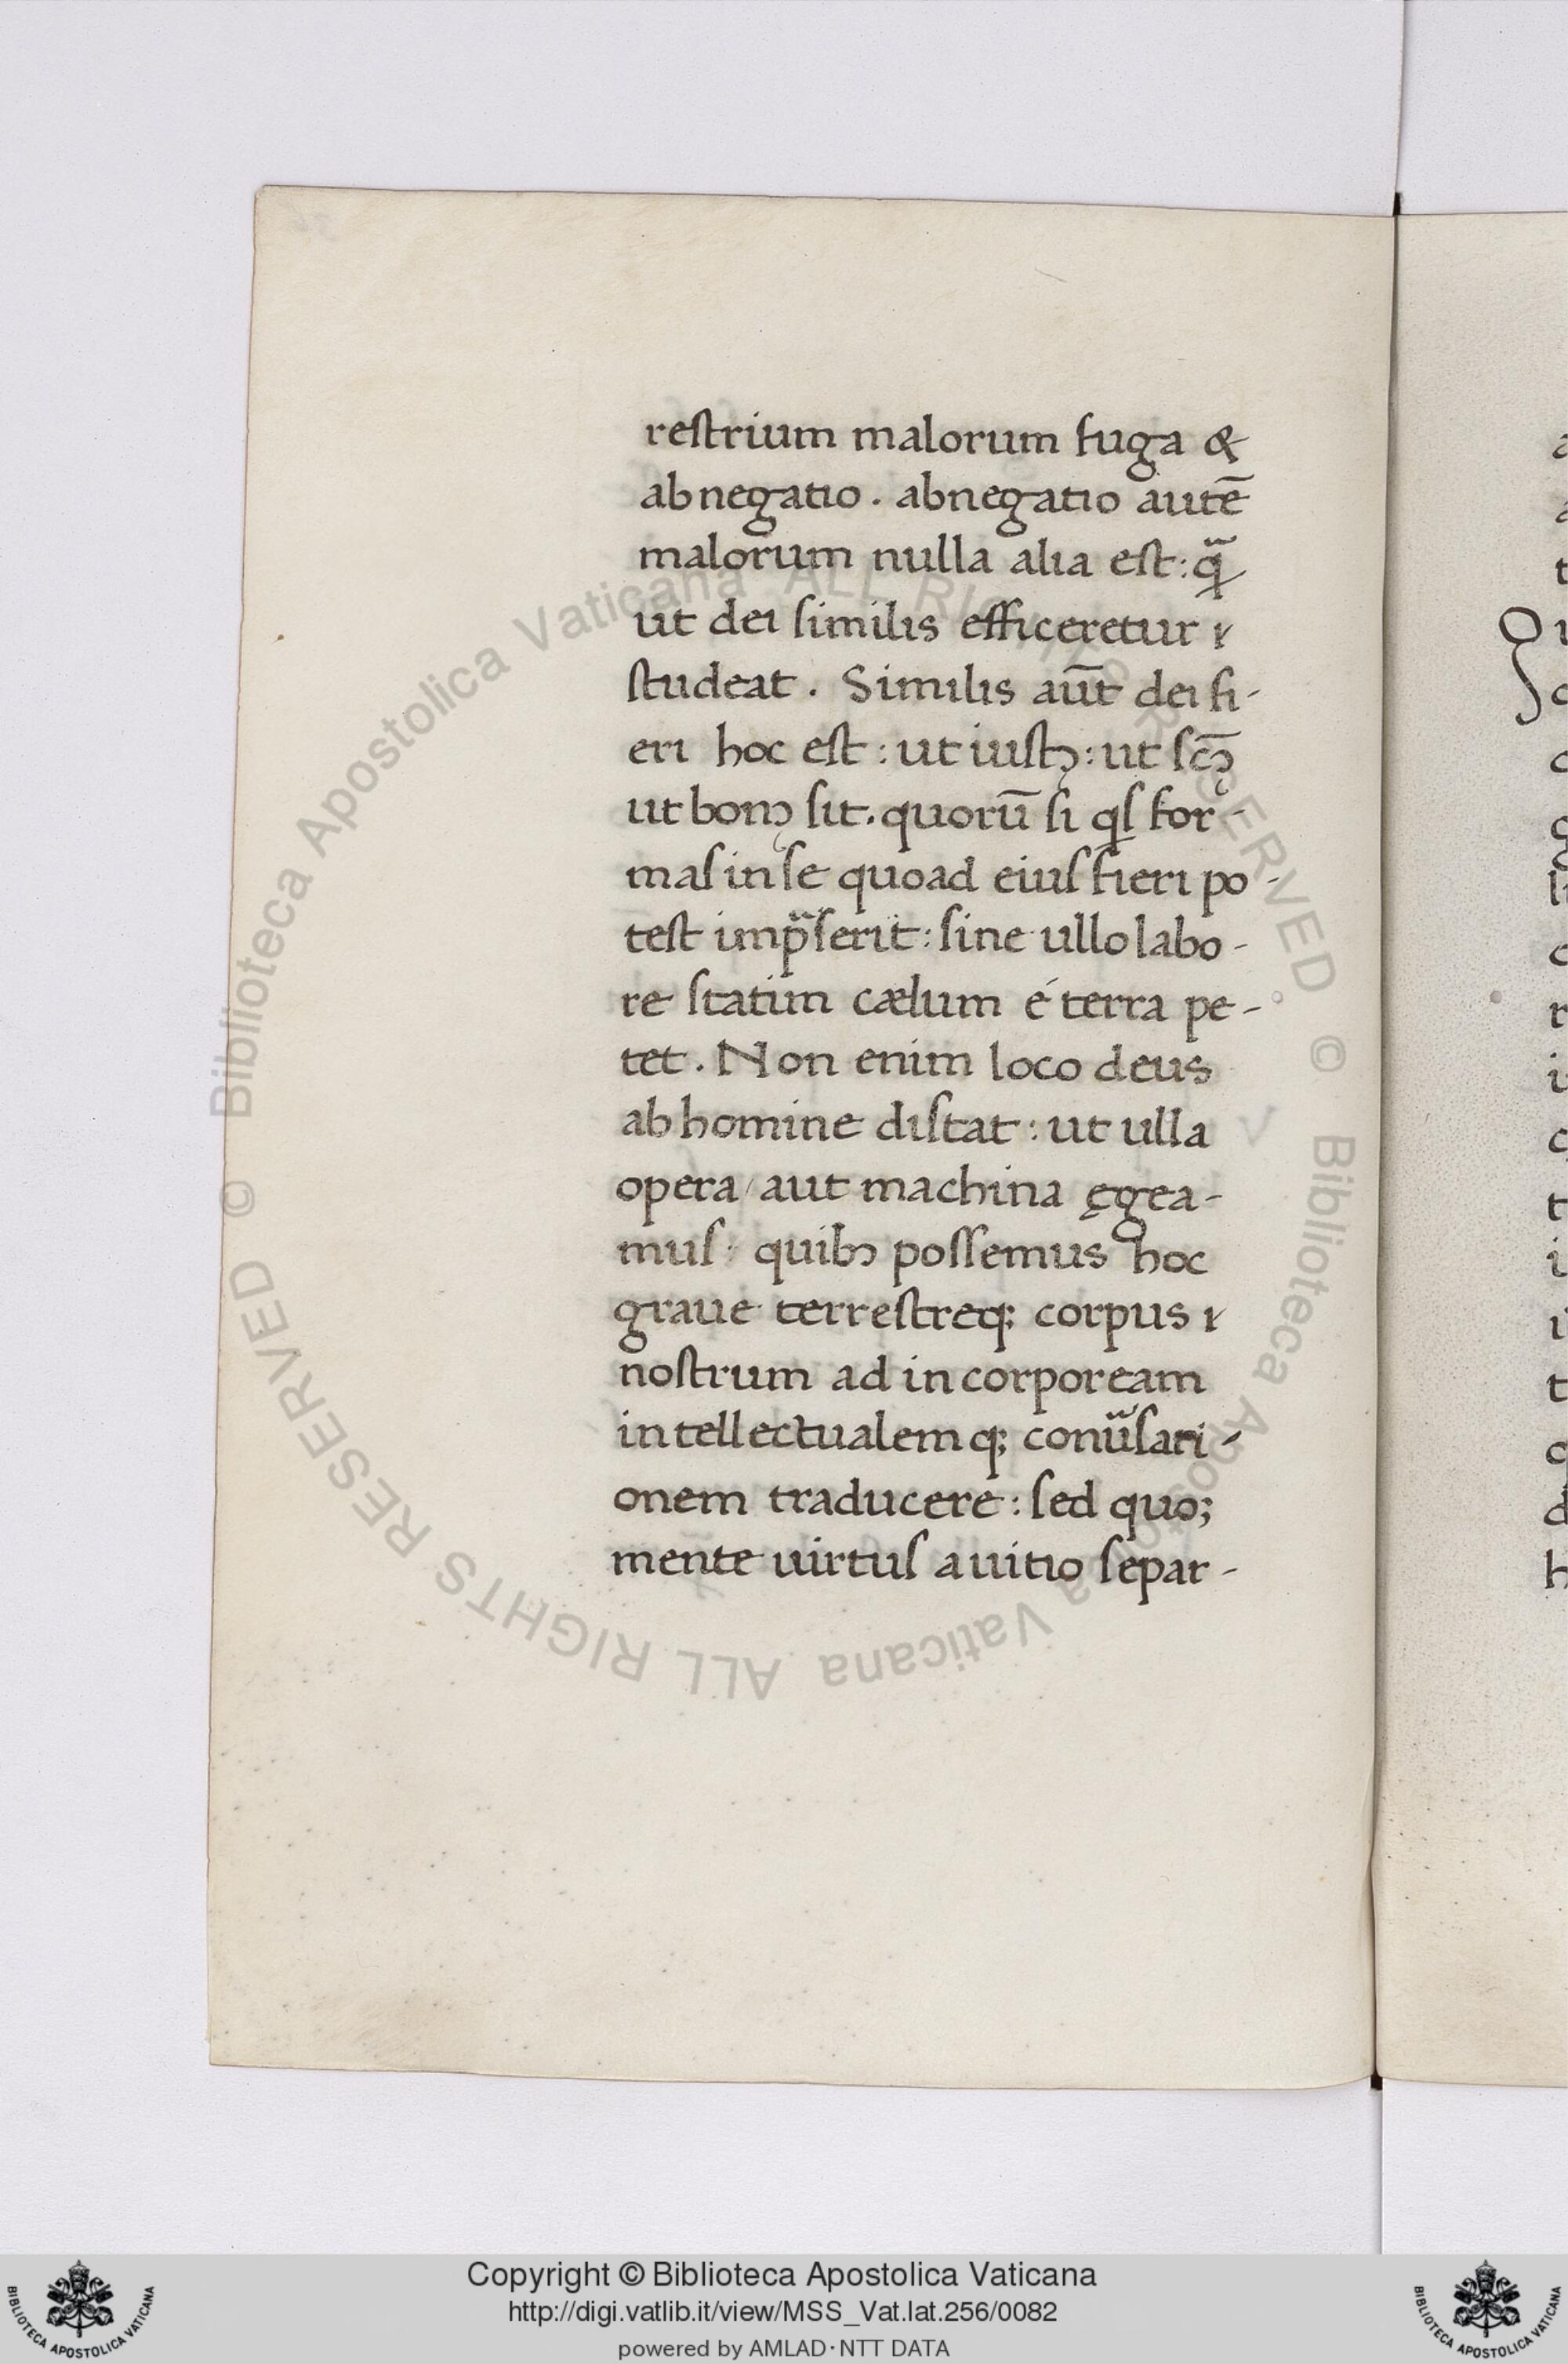 reſtrium malorum fuga &
abnegatio . abnegatio autē
malorum nulla alia eſt : q̃
ut dei ſimilis efficeretur
ſtudeat . Similis aūt dei fi-
eri hoc eſt : ut iuſtꝫ : ut ſc̄ꝫ
ut bonꝫ ſit . quorū ſi qſ for-
maſ in ſe quoad eiuſ fieri po-
teſt imp̃ſerit : ſine ullo labo-
re ſtatim cælum é terra pe-
tet . Non enim loco deus
ab homine diſtat : ut ulla
opera / aut machina ęgea-
muſ : quibꝫ poſſemus hoc
graue terreſtreq; corpus
noſtrum ad incorpoream
intellectualemq; conũſati-
onem traducere : ſed quo;
mente uirtuſ a uitio ſepar-
Copyright © Biblioteca Apostolica Vaticana
http://digi.vatlib.it/view/MSS_Vat.lat.256/0082
powered by AMLAD·NTT DATA
BIBLIOTECA APOSTOLICA VATICANA
BIBLIOTECA APOSTOLICA VATICANA
© Biblioteca Apostolica Vaticana ALL RIGHTS RESERVED
© Biblioteca Apostolica Vaticana ALL RIGHTS RESERVED